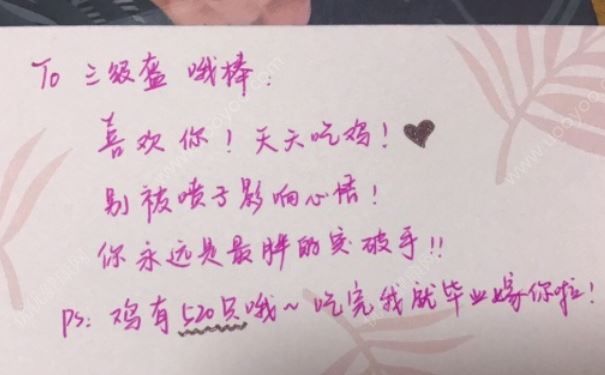 To 三级盔 哦棒:
喜欢你！天天吃鸡！♥
别被喷子影响心情！
你永远是最胖的突破手!!
ps: 鸡有520只哦~吃完我就毕业嫁你啦！